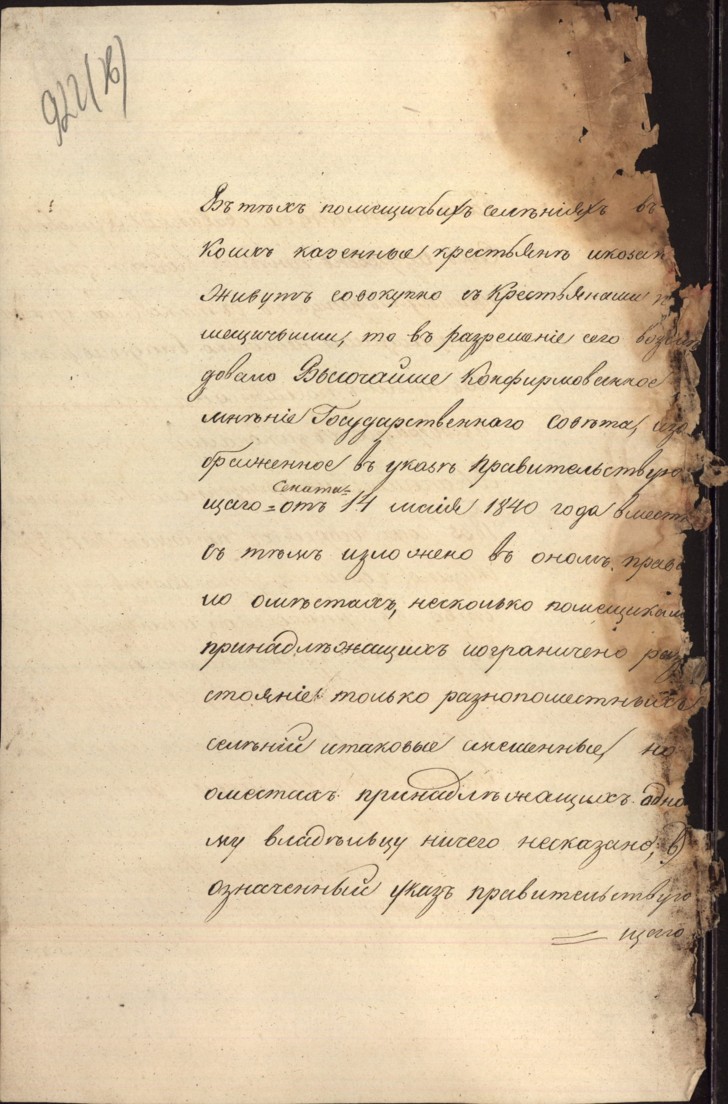 922(76)
Въ тѣхъ помещичьихъ селѣнияхъ въ
Коихъ казенные крестьянѣ икозак
живутъ совокупно съ Крестьянами п
мещичьими, то въ разрешение сего
довало Высочайше Конфирмованное
мнѣние Государственнаго Совѣта, изо
браженное въ указѣ правительствую
Сената
щаго = отъ 14 маия 1840 года вместѣ
съ тѣмъ изложено въ ономъ прави
ло оместахъ, несколько помещикам
принадлѣжащихъ иограничено раз
стояние только разнопоместныхъ
селѣний итаковые смешенные, но
оместахъ принадлѣжащихъ одно
му владѣльцу ничего несказано, В
означенный указъ правительствую
щаго